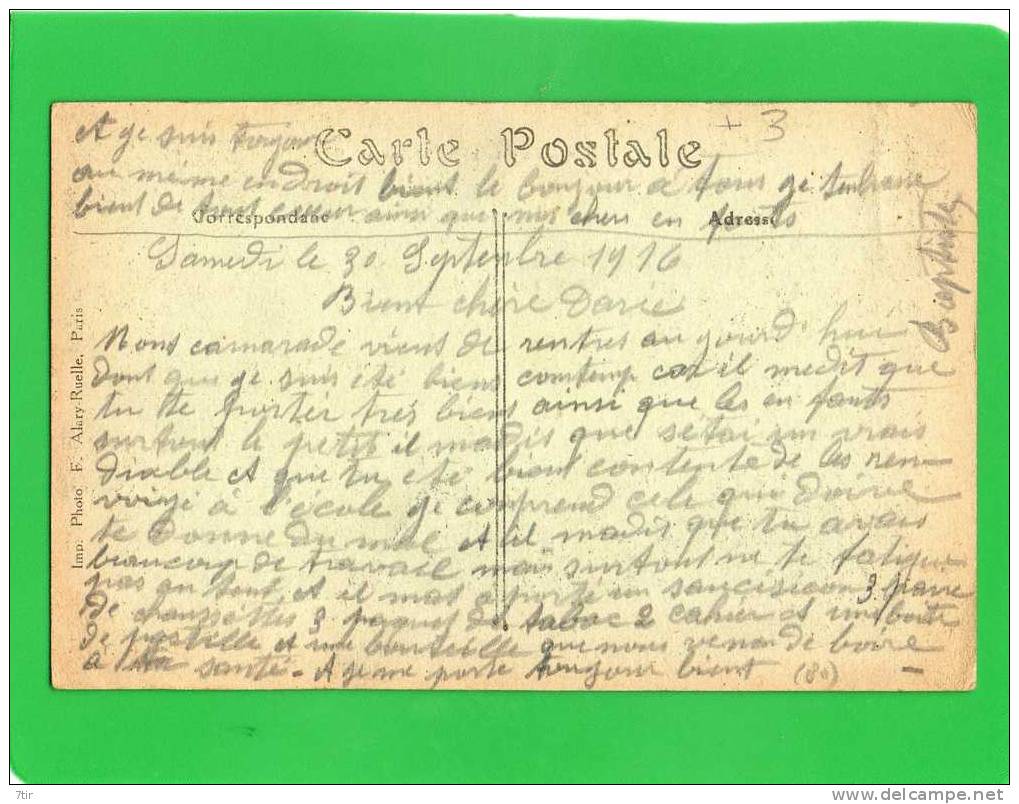 + 3
et je suis toujour
Carte Postale
au même endroit bient le bonjour a tous je tenbrasse
bient de tout coeur ainsi que mes chers en fants
Correspondance
Adresse
Baptiste
Samedi le 30 Septenbre 1916
Bient chère Darie
Mont camarade vient de rentres au gourd'hui
dont que je suis été bient comtemp car il medit que
tu te porter très bient ainsi que les en fants
surtout le petit il madis que setai un vrais
diable et que tu été bient contente de les ren-
voiyé à l'école je comprend cele qui doive
te donne du mal et il madit que tu avais
beaucoup de travail mais surtout ne te fatigue
pas au tent, et il mas aporté un saucisicon 3 paire
de chaussettes 3 paquet de tabac 2 cahier et une boite
de pastille et une bouteille que nous venon de boire
a ta santé - et je me porte toujour bient (80) -
Imp. Photo F. Alary-Ruelle, Paris
7tir
www.delcampe.net